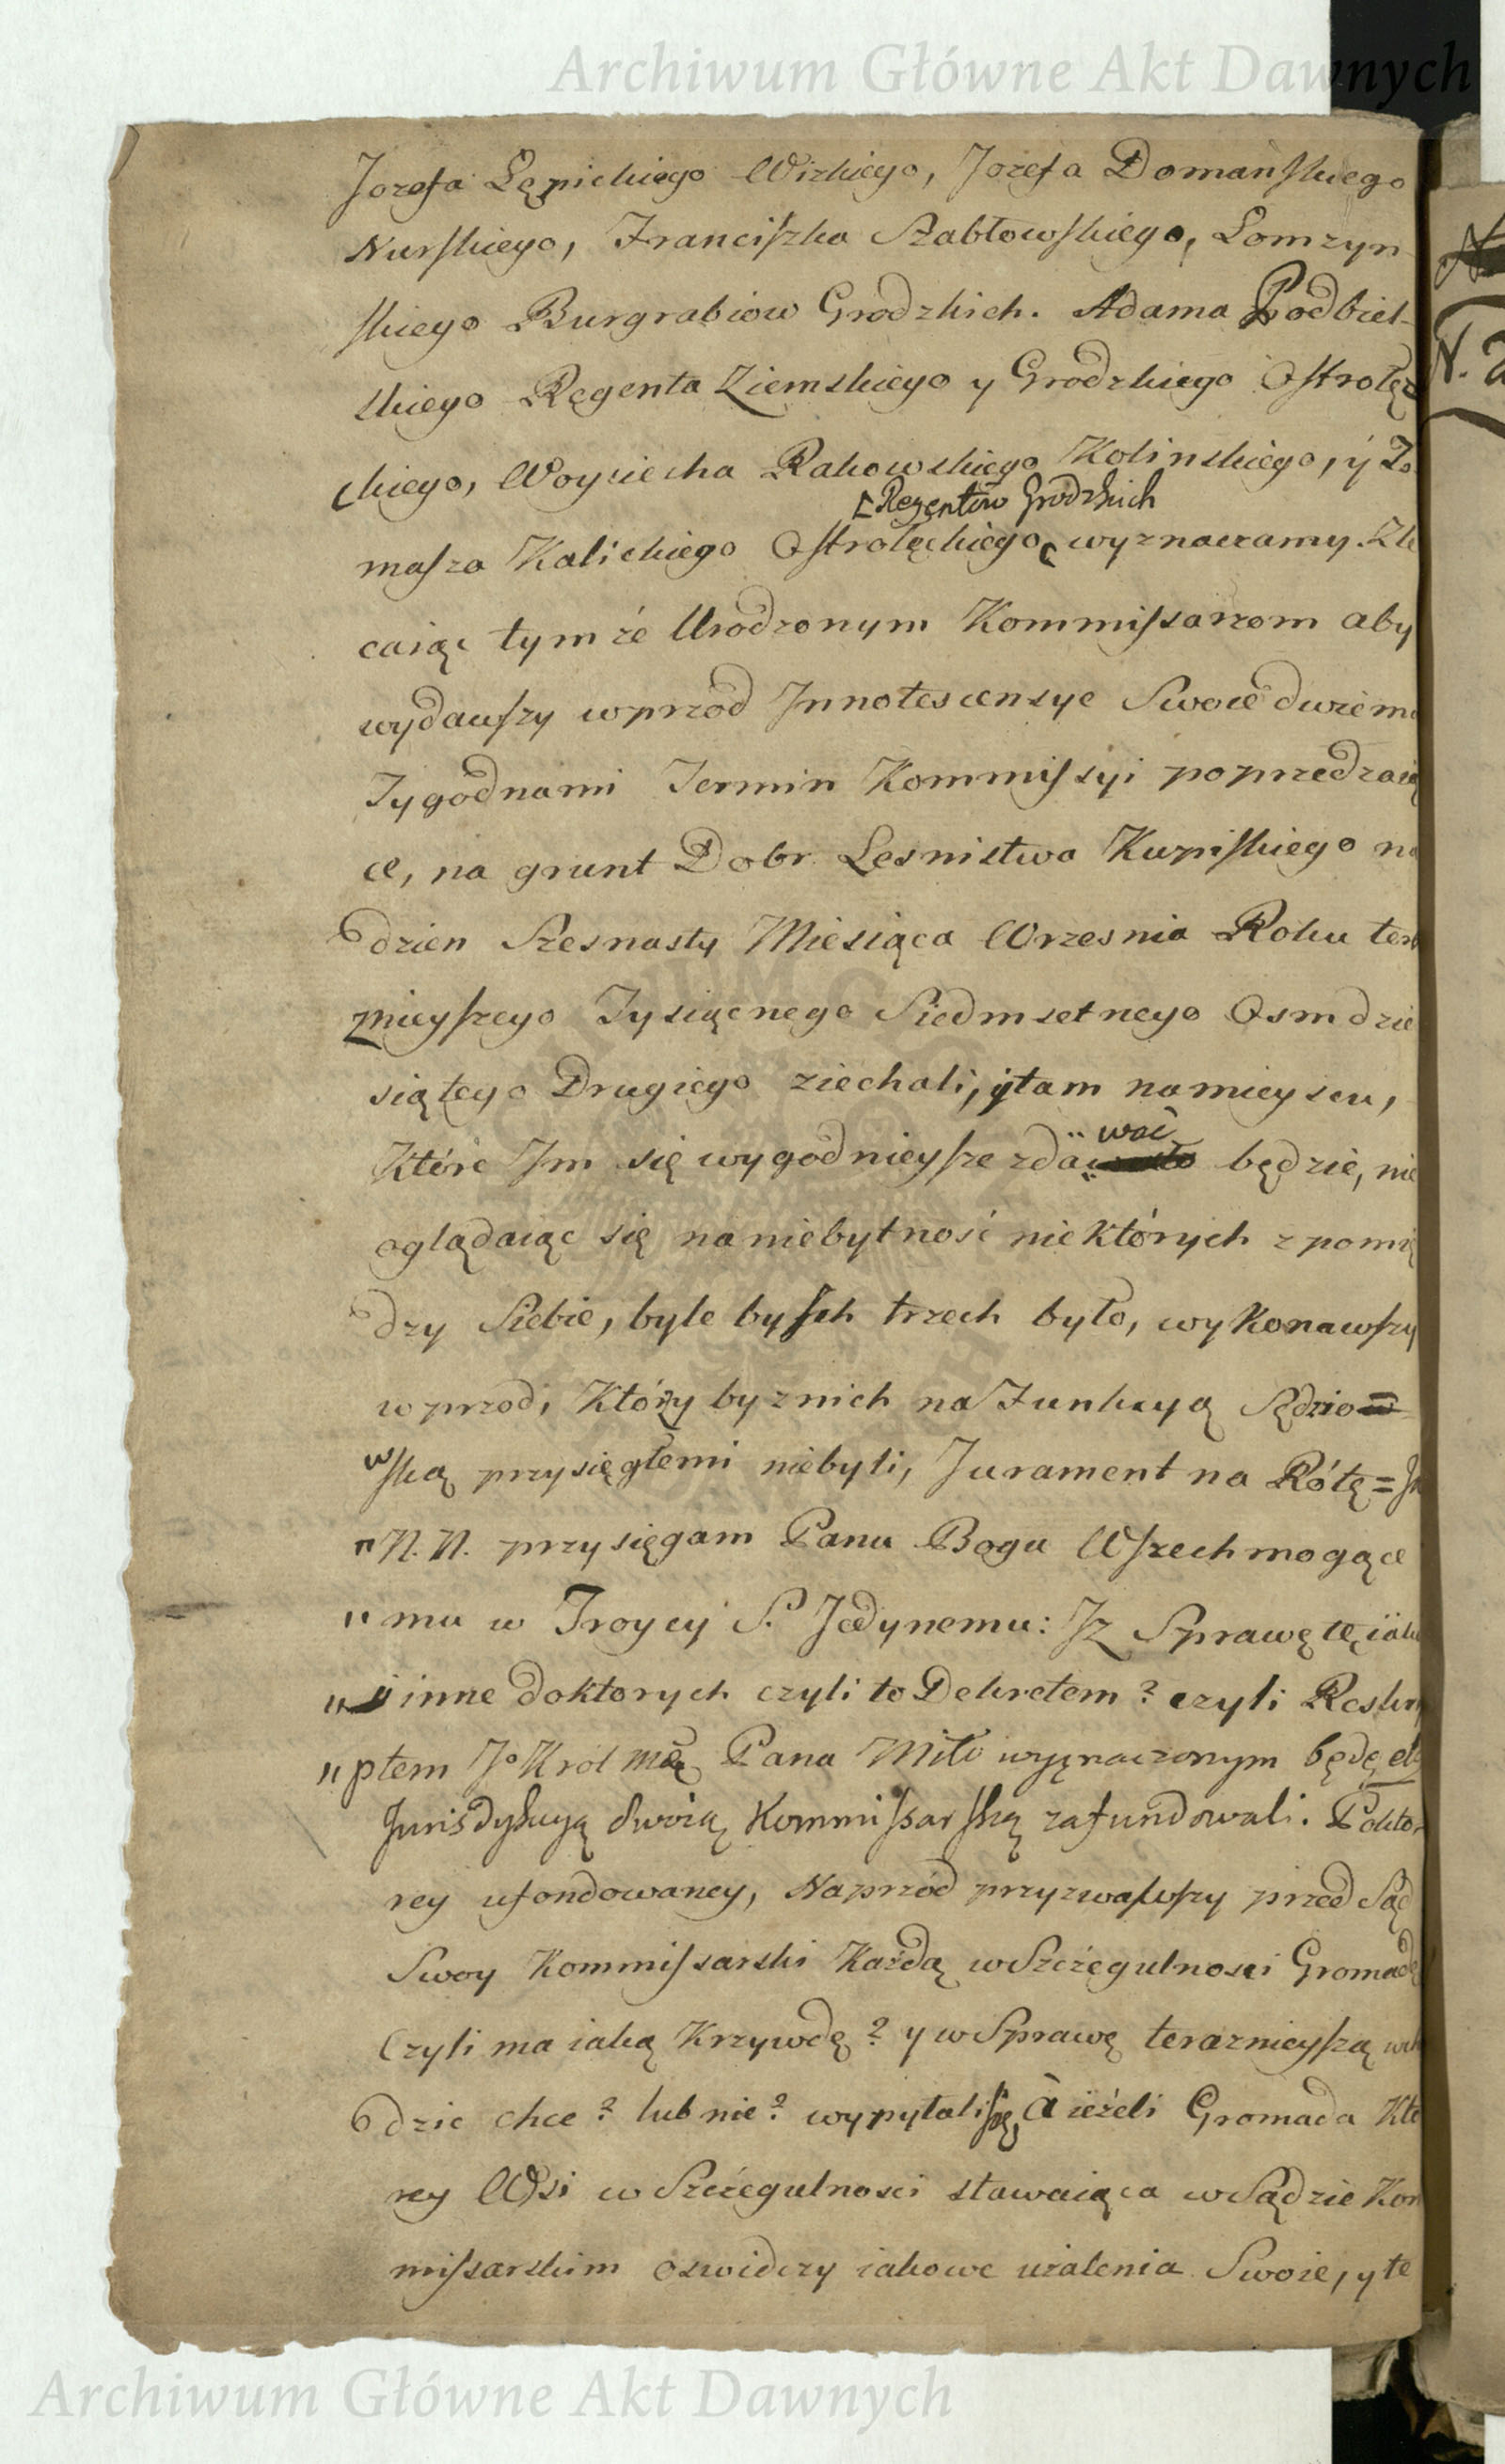 Archiwum Główne Akt Dawnych
Jozefa Lępickiego Wizkiego, Jozefa Domańskiego
Nurskiego, Franciszka Szabłowskiego, Lomzyn
skiego Burgrabiow Grodzkich. Adama Podbiel-
skiego Regenta Ziemskiego y Grodzkiego Ostrołęc
kiego, Woyciecha Rakowskiego Kolinskiego, y To
Regentow Grodzkich
masza Kalickiego Ostrołęckiego wyznaczamy. Zle
caiąc tymże Urodzonym Kommissarzom aby
wydawszy wprzod Innotescensye Swoie dwiema
Tygodnami Termin Kommissyi poprzedzaią
ce, na grunt Dobr Lesnictwa Kurpiskiego na
dzien Szesnasty Miesiąca Wrzesnia Roku tera
znieyszego Tysiącnego Siedmsetnego Osmdzie
siątego Drugiego ziechali, ytam namieyscu,
wać
Które Im się wygodnieysze zda będzie, nie
oglądaiąc się naniebytność niektórych z pomię
dzy Siebie, byle bysch trzech było, wykonawszy
wprzod, Którzy byznich na Funkcyą Sędzio
wską przysięgłemi niebyli, Jurament na Rótę = Ja
"N. N. przysięgam Panu Bogu Wszechmogące
"mu w Troycy S. Jedynemu: Iz Sprawę tę iako
"y inne doktorych czyli to Dekretem? czyli Reskry
"ptem Jo Krol Mci Pana Miło wyznaczonym będę etc
Jurisdykcyą Swoią Kommissarską zafundowali. Pokto
rey ufondowaney, Naprzód przyzwawszy przed Sąd
Swoy Kommissarski Każdą wSzczegulnosci Gromadę
Czyli ma iaką Krzywdę? y wSprawę teraznieyszą wcho
dzic chce? lub nie? wypytali się, à ieżeli Gromada Któ
rey Wsi w Szczegulnosci stawaiąca w Sądzie Kom
missarskim oswidczy iakowe użalenia Swoie, y te
Archiwum Główne Akt Dawnych